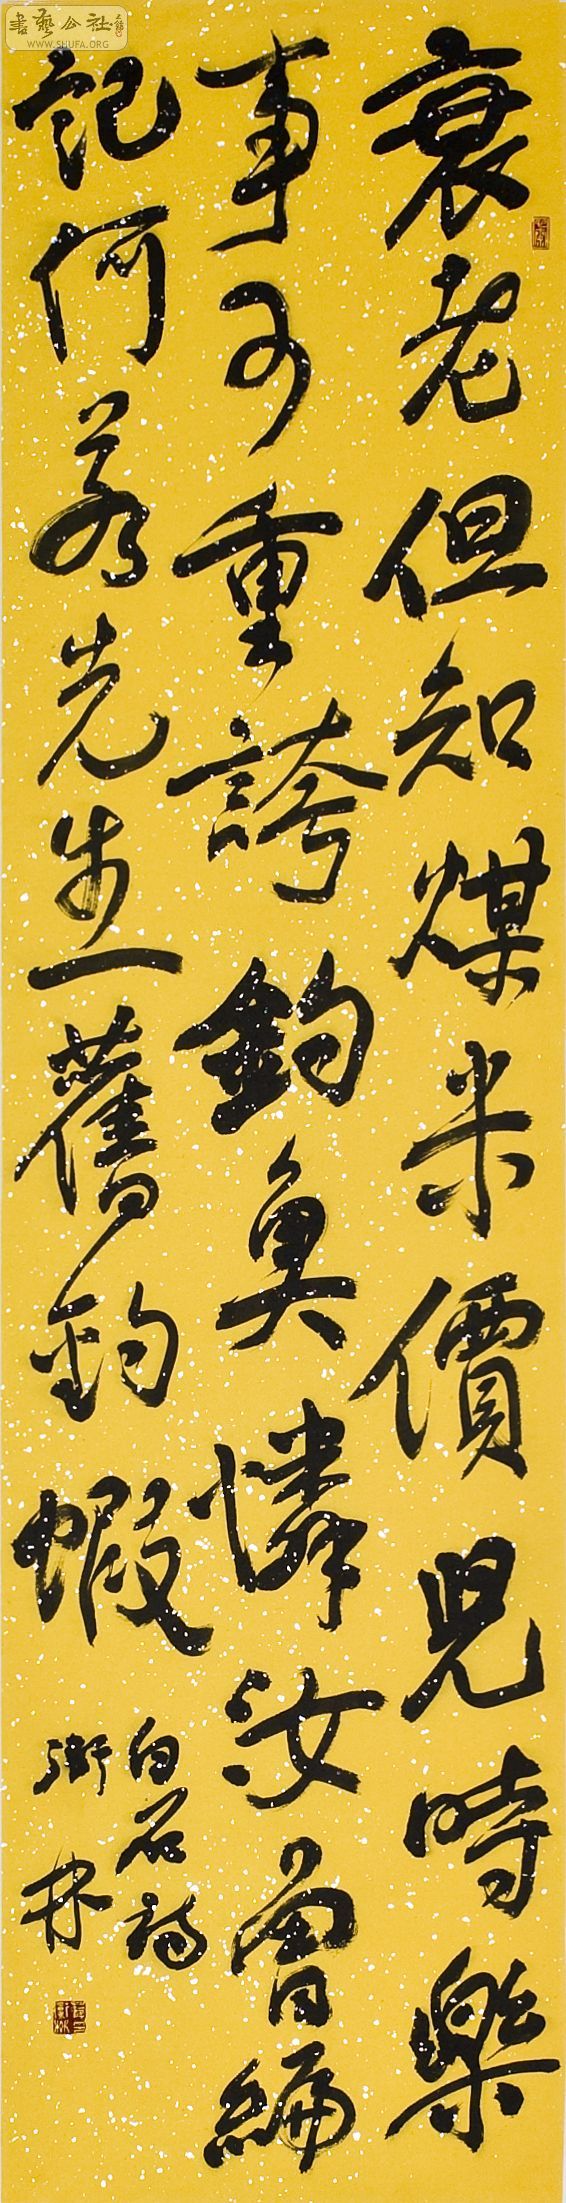 書藝公社
WWW.SHUFA.ORG
衰老但知煤米價兒時樂
事可重誇釣魚憐汝曾編
記何若先生舊釣蝦
白石詩
林